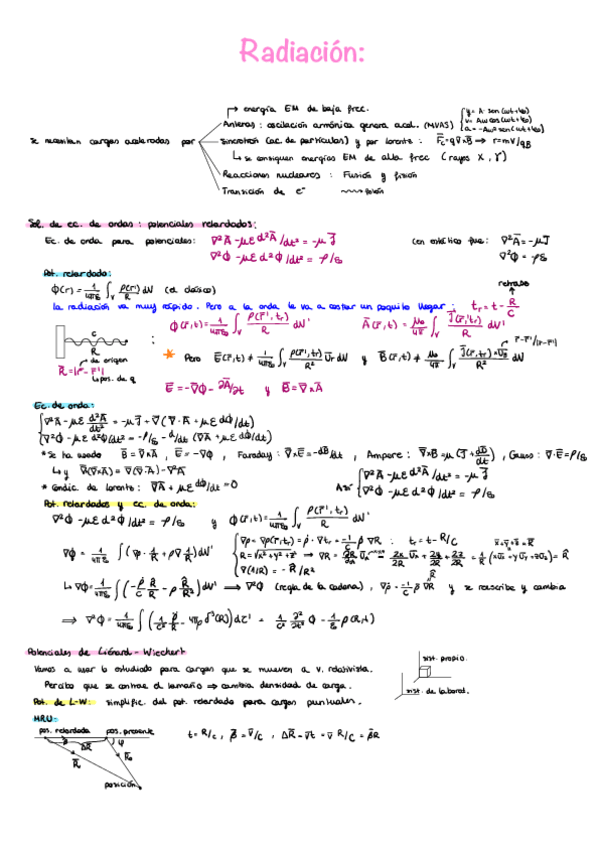 Radiación:
energía EM de baja frec.
Antenas: oscilación armónica genera acel. (MVAS) { y = A·sen(ωt+φ₀)
v = Aω cos(ωt+φ₀)
a = -Aω² sen(ωt+φ₀)
se necesitan cargas aceleradas por
Sincrotrón (ac. de partículas) y por Lorente: F̄c = q v̄ × B̄ ⇒ r = mv/qB
↳ se consiguen energías EM de alta frec (rayos X, γ)
Reacciones nucleares: Fusión y fisión
Transición de e⁻ fotón
Sol. de ec. de ondas: potenciales retardados:
Ec. de onda para potenciales: ∇²Ā - με d²Ā/dt² = -μ J̄ (en estático fue: ∇²Ā = -μJ̄
∇²φ - με d²φ/dt² = ρ/ε₀ ∇²φ = ρ/ε₀
Pot. retardado:
φ(r) = 1/4πε₀ ∫v ρ(r)/R dV (el clásico) retraso
la radiación va muy rápido. Pero a la onda le va a costar un poquito llegar: tr = t - R/C
φ(r̄,t) = 1/4πε₀ ∫v ρ(r̄',tr)/R dV' Ā(r̄,t) = μ₀/4π ∫v J̄(r̄',tr)/R dV'
c
R
de origen
R̄ = |r̄ - r̄'|
↳ pos. de q
* Pero Ē(r̄,t) ≠ 1/4πε₀ ∫v ρ(r̄',tr)/R² ūr dV y B̄(r̄,t) ≠ μ₀/4π ∫v J̄(r̄',tr)×ūR/R² dV r̄-r̄'/|r̄-r̄'|
Ē = -∇φ - ∂Ā/∂t y B̄ = ∇×Ā
Ec. de onda:
∇²Ā - με d²Ā/dt² = -μJ̄ + ∇(∇·Ā + με dφ/dt)
∇²φ - με d²φ/dt² = -ρ/ε₀ - d/dt (∇Ā + με dφ/dt)
* Se ha usado B̄ = ∇×Ā, Ē = -∇φ, Faraday: ∇×Ē = -dB̄/dt, Ampere: ∇×B̄ = μ(J̄ + dD̄/dt), Gauss: ∇·Ē = ρ/ε
↳ y ∇×(∇×Ā) = ∇(∇·Ā) - ∇²Ā
* Condic. de Lorente: ∇Ā + με dφ/dt = 0 Así { ∇²Ā - με d²Ā/dt² = -μ J̄
∇²φ - με d²φ/dt² = ρ/ε₀
Pot. retardados y ec. de onda:
∇²φ - με d²φ/dt² = ρ/ε₀ y φ(r̄,t) = 1/4πε₀ ∫v ρ(r̄',tr)/R dV'
∇φ = 1/4πε₀ ∫(∇ρ·1/R + ρ∇1/R) dV'
∇ρ = ∇ρ(r̄',tr) = ρ̇·∇tr = -1/C ρ̇ ∇R : tr = t - R/C
R = √x²+y²+z² ⇒ ∇R = ∂R/∂x ūx = 2x/2R + 2y/2R + 2z/2R = 1/R (xūx + yūy + zūz) = R̂
∇(1/R) = -R̂/R²
↳ ∇φ = 1/4πε₀ ∫(-ρ̇/C R̂/R - ρ R̂/R²) dV' ⇒ ∇²φ (regla de la cadena), ∇ρ̇ = -1/C ρ̈ ∇R y se reescribe y cambia
⇒ ∇²φ = 1/4πε₀ ∫(1/C² ρ̈/R - 4πρ δ³(R)) dτ' = 1/C² ∂²/∂t² φ - 1/ε ρ(R,t)
Potenciales de Liénard-Wiechert
Vamos a usar lo estudiado para cargas que se mueven a v. relativista.
Percibo que se contrae el tamaño ⇒ cambia densidad de carga.
sist. propio.
sist. de laborat.
Pot. de L-W: simplific. del pot. retardado para cargas puntuales.
MRU:
pos. retardada pos. presente
t = R/C, β̄ = v̄/C, ΔR̄ = v̄t = v̄ R/C = β̄R
ΔR̄
φ
R̄
R̄₀
posición